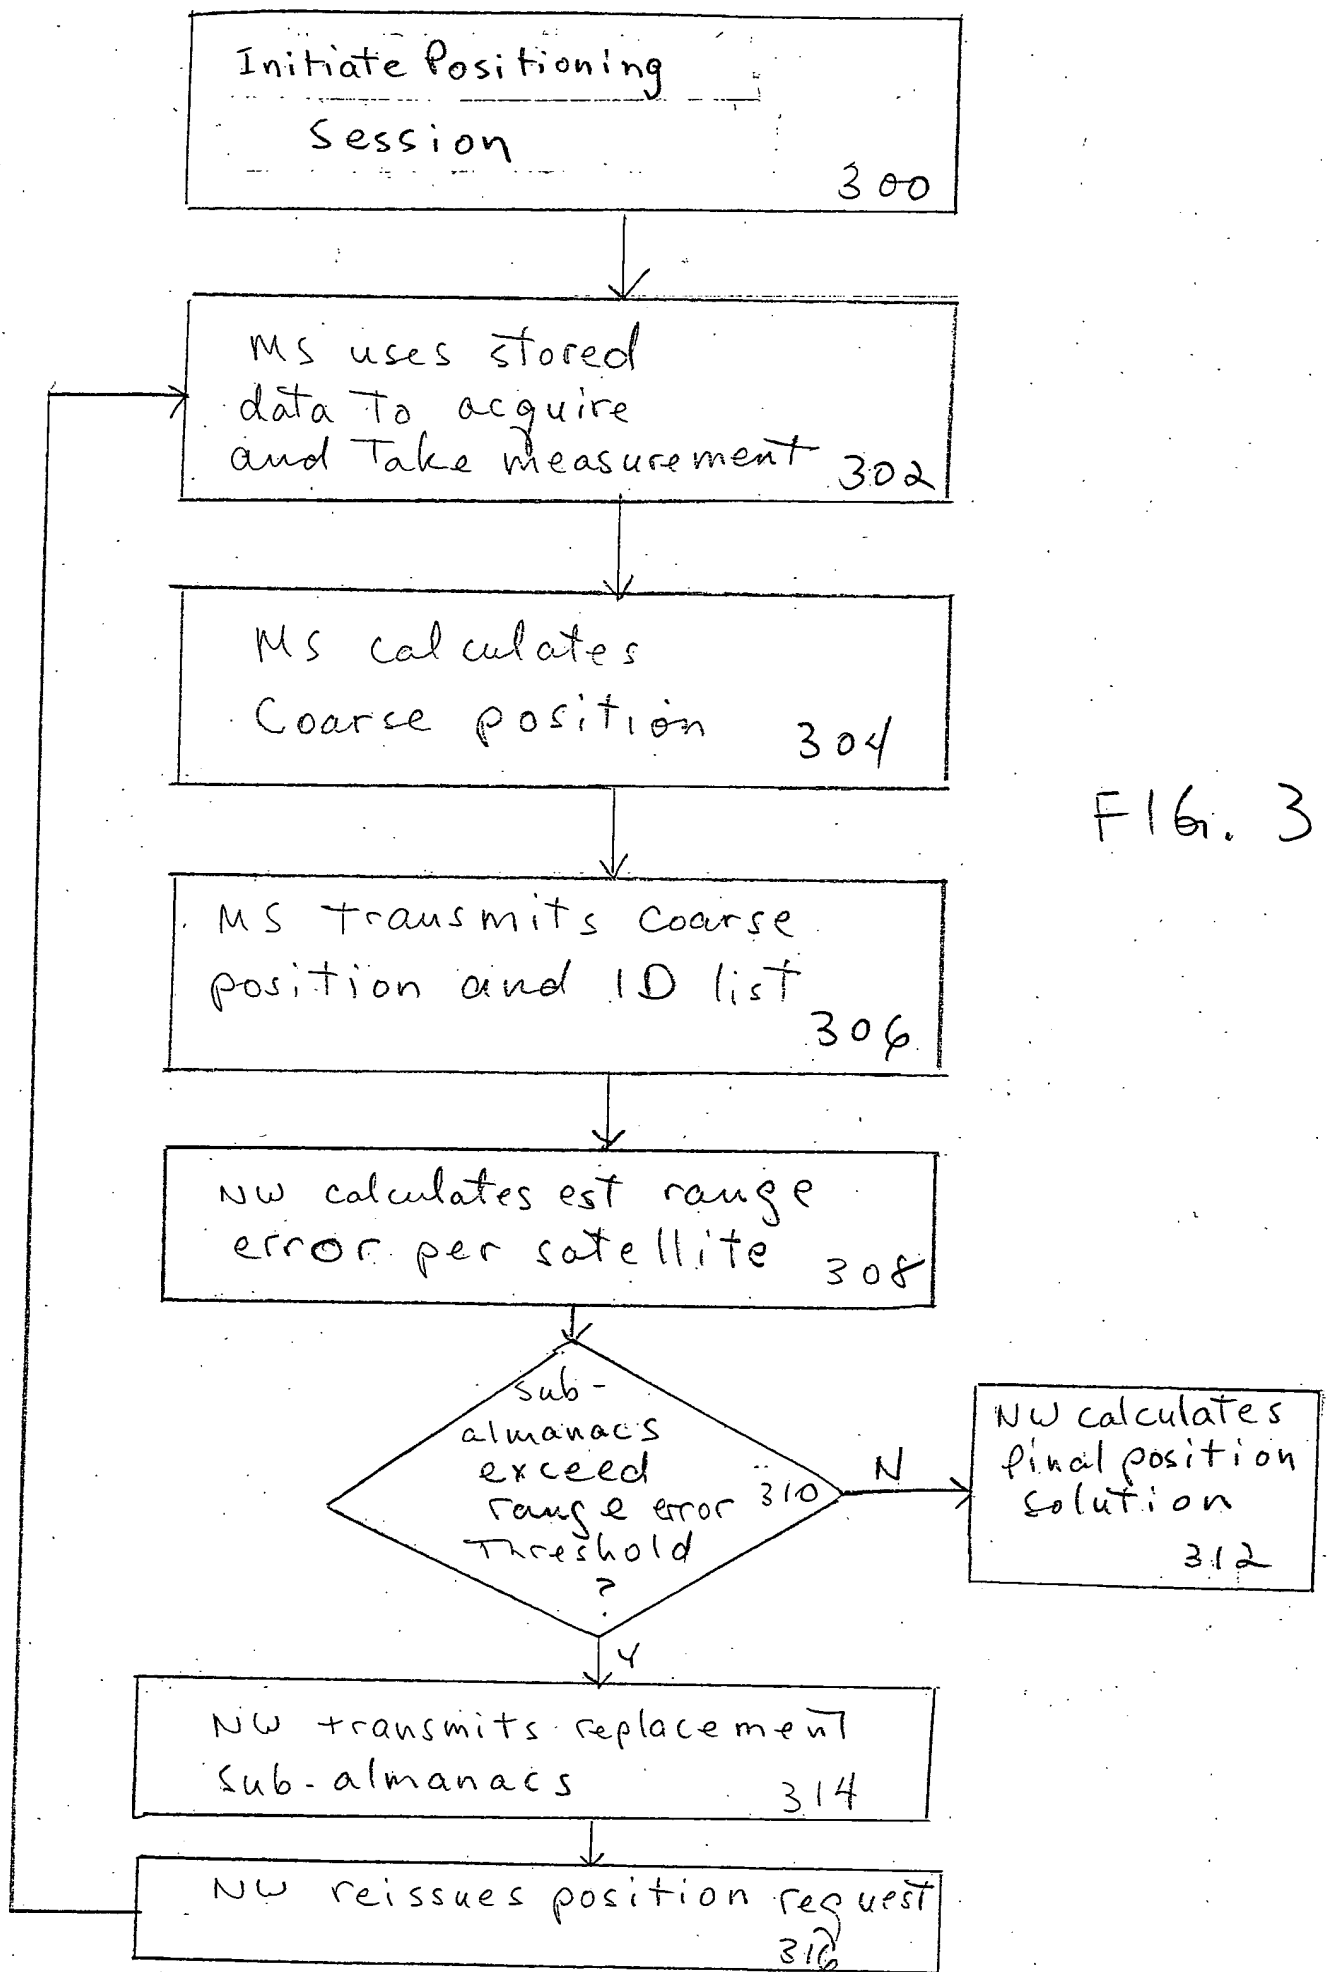 Initiate Positioning
Session
300
MS uses stored
data to acquire
and Take measurement
302
MS calculates
Coarse position
304
FIG. 3
MS transmits coarse
position and ID list
306
NW calculates est range
error per satellite
308
sub-
almanacs
exceed
range error
310
Threshold
?
N
NW calculates
final position
solution
312
Y
NW transmits replacement
Sub-almanacs
314
NW reissues position request
316